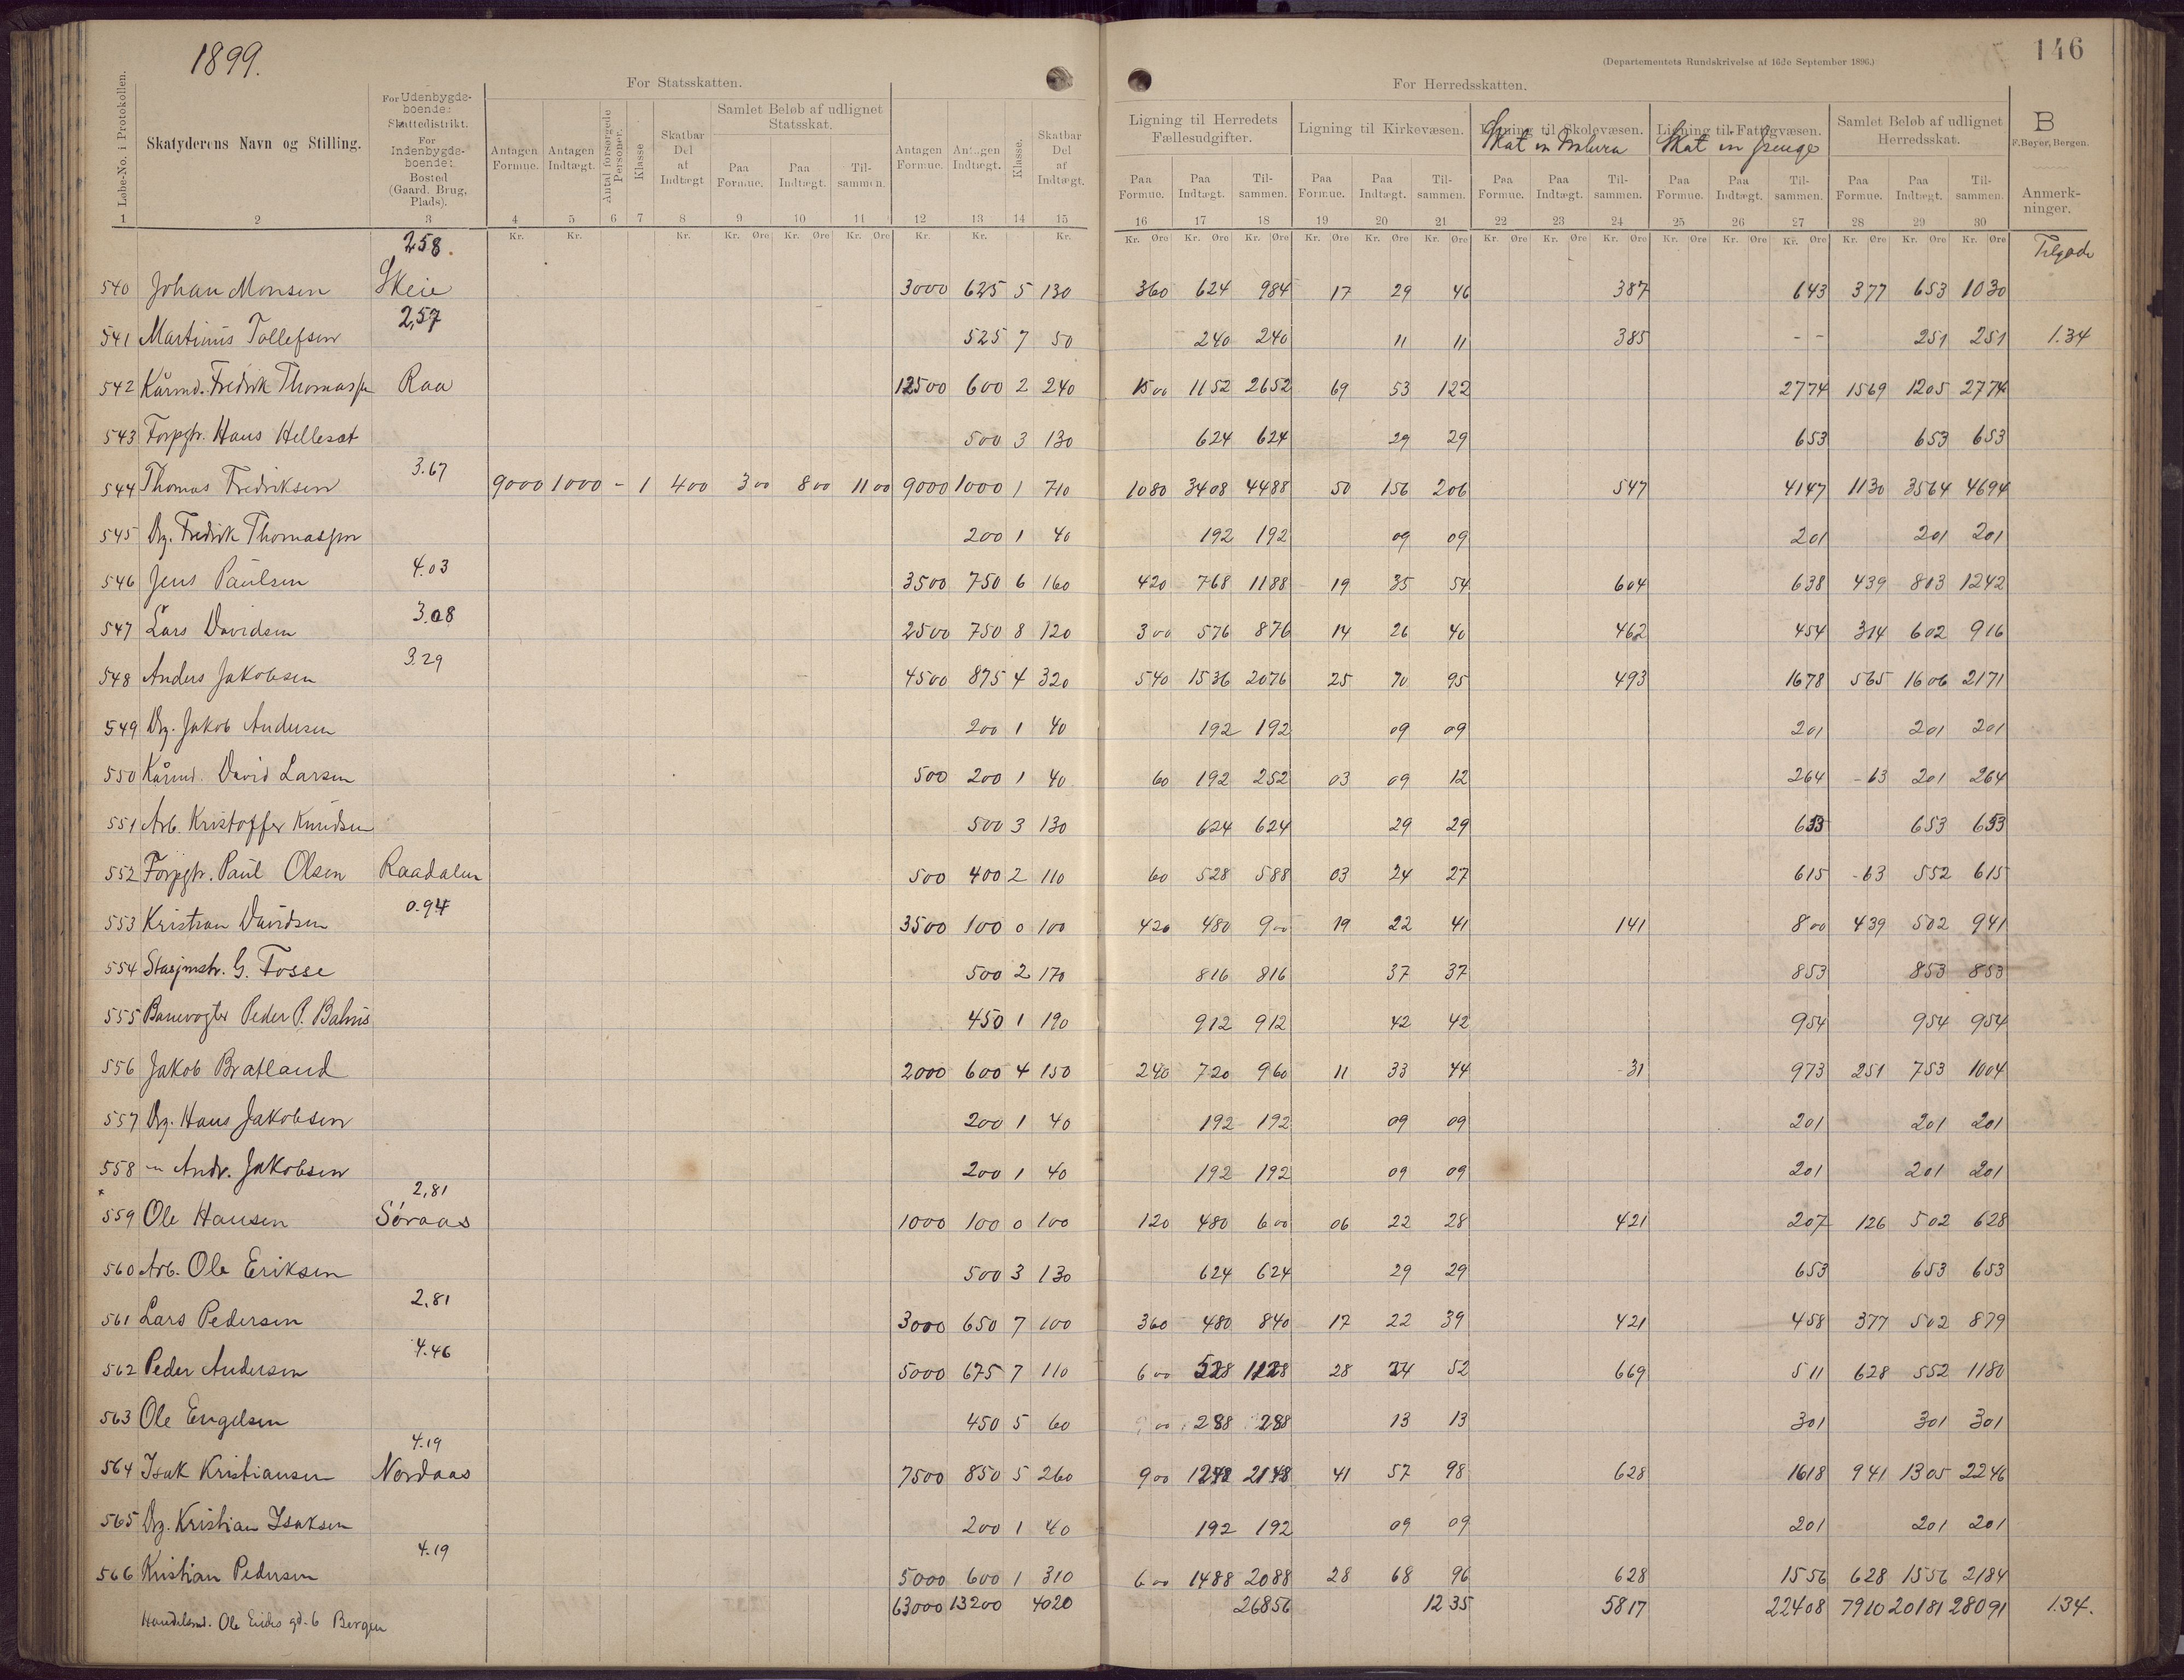 1899.
146
(Departementets Rundskrivelse af 16de September 1896.)
For Statsskatten.
For Herredsskatten.
Løbe-No. i Protokollen. Skatyderens Navn og Stilling. For Udenbygdsboende: Skattedistrikt. For Indenbygdsboende: Bosted (Gaard, Brug, Plads). Antagen Formue. Antagen Indtægt. Antal forsørgede Personer. Klasse Skatbar Del af Indtægt Samlet Beløb af udlignet Statsskat. Paa Formue. Paa Indtægt. Tilsammen. Antagen Formue. Antagen Indtægt. Klasse. Skatbar Del af Indtægt.
Ligning til Herredets Fællesudgifter. Ligning til Kirkevæsen. Ligning til Skolevæsen. Skat in Ligning til Fattigvæsen. Skat in Penge Samlet Beløb af udlignet Herredsskat. B F.Beyer, Bergen. Anmerkninger.
Paa Formue. Paa Indtægt. Tilsammen. Paa Formue. Paa Indtægt. Tilsammen. Paa Formue. Paa Indtægt. Tilsammen. Paa Formue. Paa Indtægt. Tilsammen. Paa Formue. Paa Indtægt. Tilsammen.
1 2 3 4 5 6 7 8 9 10 11 12 13 14 15 16 17 18 19 20 21 22 23 24 25 26 27 28 29 30
Kr. Kr. Kr. Kr. Øre Kr. Øre Kr. Øre Kr. Kr. Kr. Kr. Øre Kr. Øre Kr. Øre Kr. Øre Kr. Øre Kr. Øre Kr. Øre Kr. Øre Kr. Øre Kr. Øre Kr. Øre Kr. Øre Kr. Øre Kr. Øre Kr. Øre
258.
Tilgode
540 Johan Monsen Skeie 3000 625 5 130 360 624 984 17 29 46 387 643 377 653 1030
2,57
541 Martinus Tollefsen 525 7 50 240 240 11 11 385 - - 251 251 1.34
542 Kårmd. Fredrik Thomassen Raa 12500 600 2 240 1500 1152 2652 69 53 122 2774 1569 1205 2774
543 Forpgtr. Hans Hellesæt 500 3 130 624 624 29 29 653 653 653
3.67
544 Thomas Fredriksen 9000 1000 - 1 400 300 800 1100 9000 1000 1 710 1080 3408 4488 50 156 206 547 4147 1130 3564 4694
545 Dg. Fredrik Thomassen 200 1 40 192 192 09 09 201 201 201
4.03
546 Jens Paulsen 3500 750 6 160 420 768 1188 19 35 54 604 638 439 803 1242
3.08
547 Lars Davidsen 2500 750 8 120 300 576 876 14 26 40 462 454 314 602 916
3.29
548 Anders Jakobsen 4500 875 4 320 540 1536 2076 25 70 95 493 1678 565 1606 2171
549 Dg. Jakob Andersen 200 1 40 192 192 09 09 201 201 201
550 Kårmd. David Larsen 500 200 1 40 60 192 252 03 09 12 264 -63 201 264
551 Arb. Kristoffer Knudsen 500 3 130 624 624 29 29 653 653 653
552 Forpgtr. Paul Olsen Raadalen 500 400 2 110 60 528 588 03 24 27 615 -63 552 615
0.94
553 Kristian Davidsen 3500 100 0 100 420 480 900 19 22 41 141 800 439 502 941
554 Stasjmstr. G. Fosse 500 2 170 816 816 37 37 853 853 853
555 Banevogter Peder P. Bahus 450 1 190 912 912 42 42 954 954 954
556 Jakob Bratland 2000 600 4 150 240 720 960 11 33 44 -31 973 251 753 1004
557 Dg. Hans Jakobsen 200 1 40 192 192 09 09 201 201 201
558 - Andr. Jakobsen 200 1 40 192 192 09 09 201 201 201
2,81
559 Ole Hansen Søraas 1000 100 0 100 120 480 600 06 22 28 421 207 126 502 628
560 Arb. Ole Eriksen 500 3 130 624 624 29 29 653 653 653
2,81
561 Lars Pedersen 3000 650 7 100 360 480 840 17 22 39 421 458 377 502 879
4.46
562 Peder Andersen 5000 675 7 110 600 528 1128 28 24 52 669 511 628 552 1180
563 Ole Engelsen 450 5 60 288 288 13 13 301 301 301
4.19
564 Isak Kristiansen Nordaas 7500 850 5 260 900 1248 2148 41 57 98 628 1618 941 1305 2246
565 Dg. Kristian Isaksen 200 1 40 192 192 09 09 201 201 201
4.19
566 Kristian Pedersen 5000 600 1 310 600 1488 2088 28 68 96 628 1556 628 1556 2184
63000 13200 4020 26856 1235 5817 22408 7910 20181 28091 1.34.
Handelsmd. Ole gd. 6 Bergen